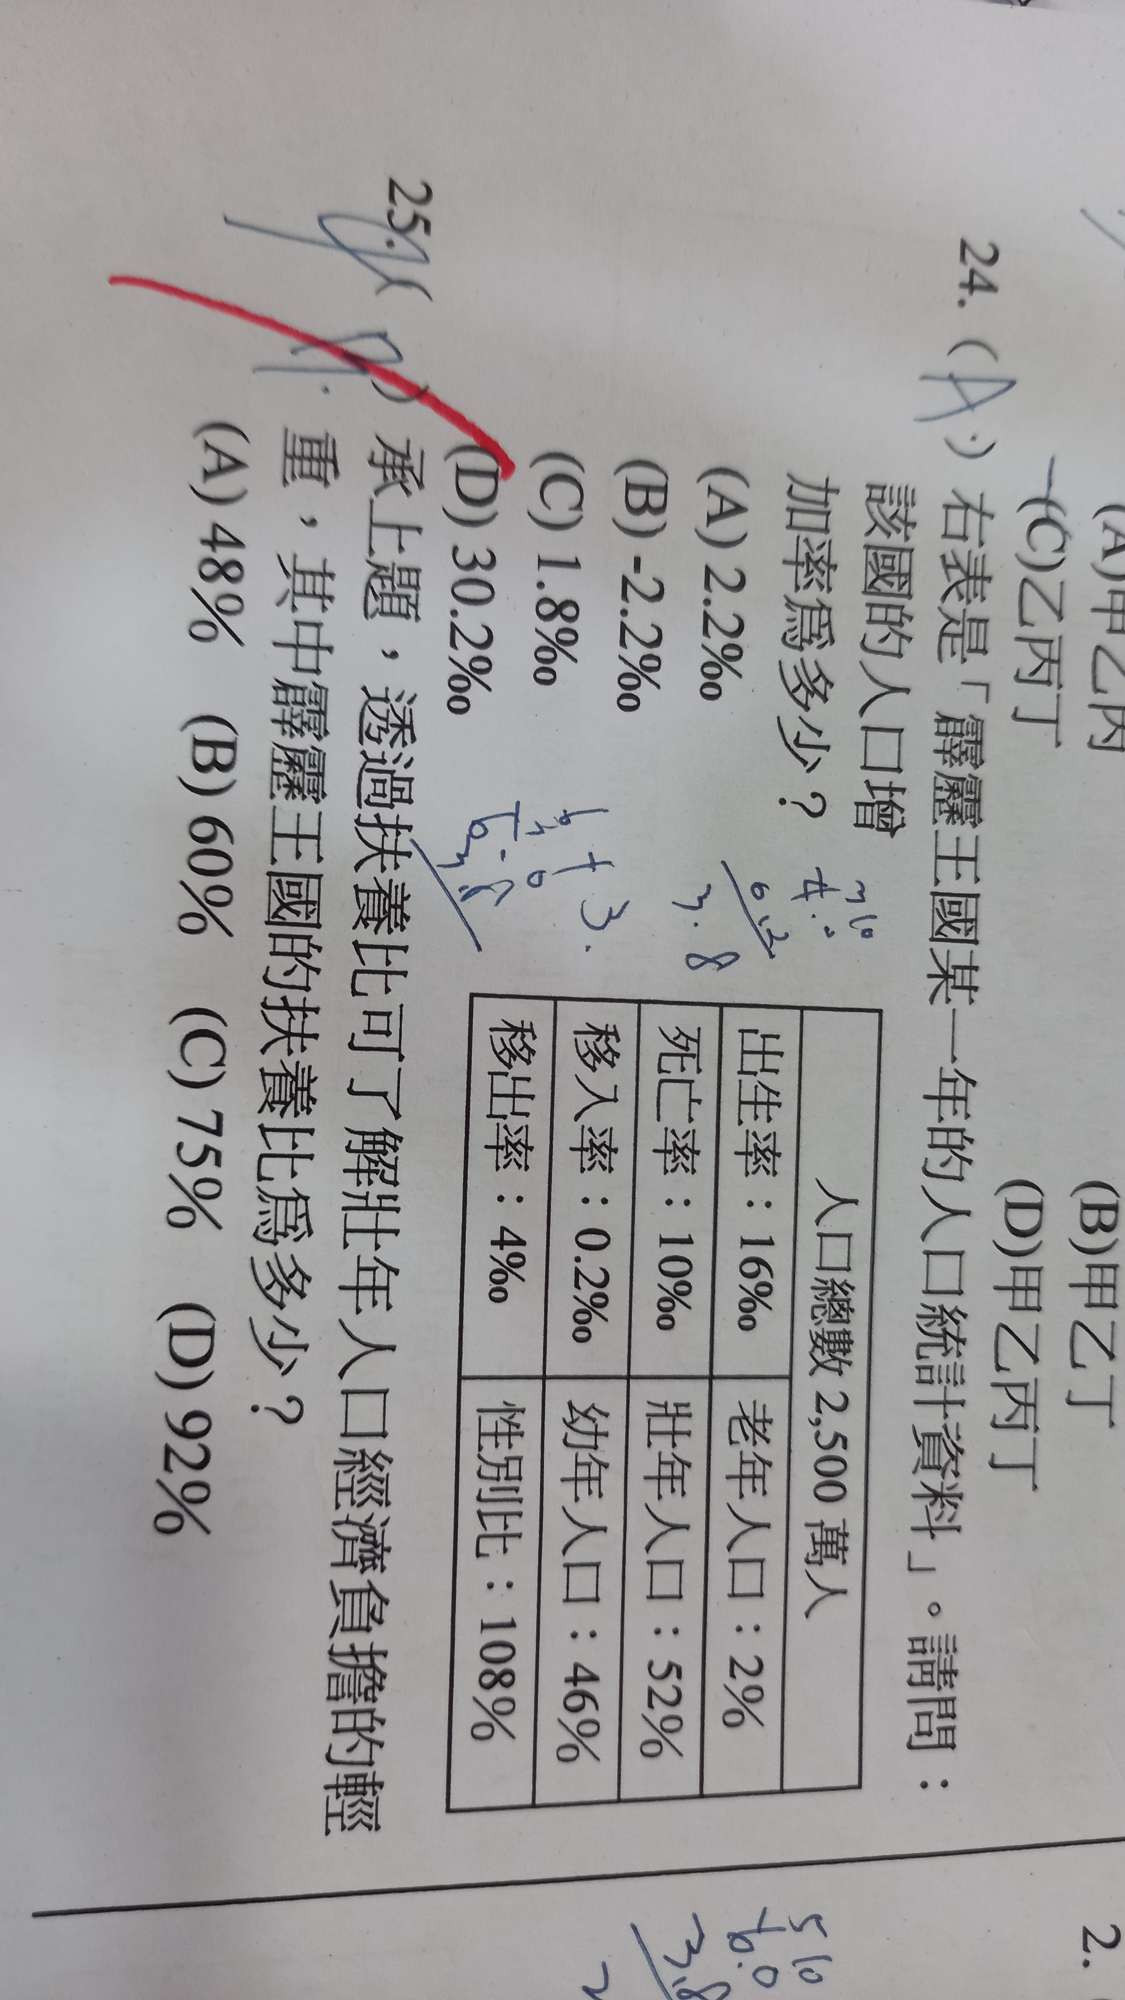 (A)甲乙丙
(B)甲乙丁
(C)乙丙丁
(D)甲乙丙丁
24. (A) 右表是「霹靂王國某一年的人口統計資料」。請問：
該國的人口增
加率為多少？
(A) 2.2‰
(B) -2.2‰
(C) 1.8‰
(D) 30.2‰
人口總數 2,500 萬人
出生率：16‰ 老年人口：2%
死亡率：10‰ 壯年人口：52%
移入率：0.2‰ 幼年人口：46%
移出率：4‰ 性別比：108%
25. 承上題，透過扶養比可了解壯年人口經濟負擔的輕
重，其中霹靂王國的扶養比為多少？
(A) 48% (B) 60% (C) 75% (D) 92%
3.8
2.